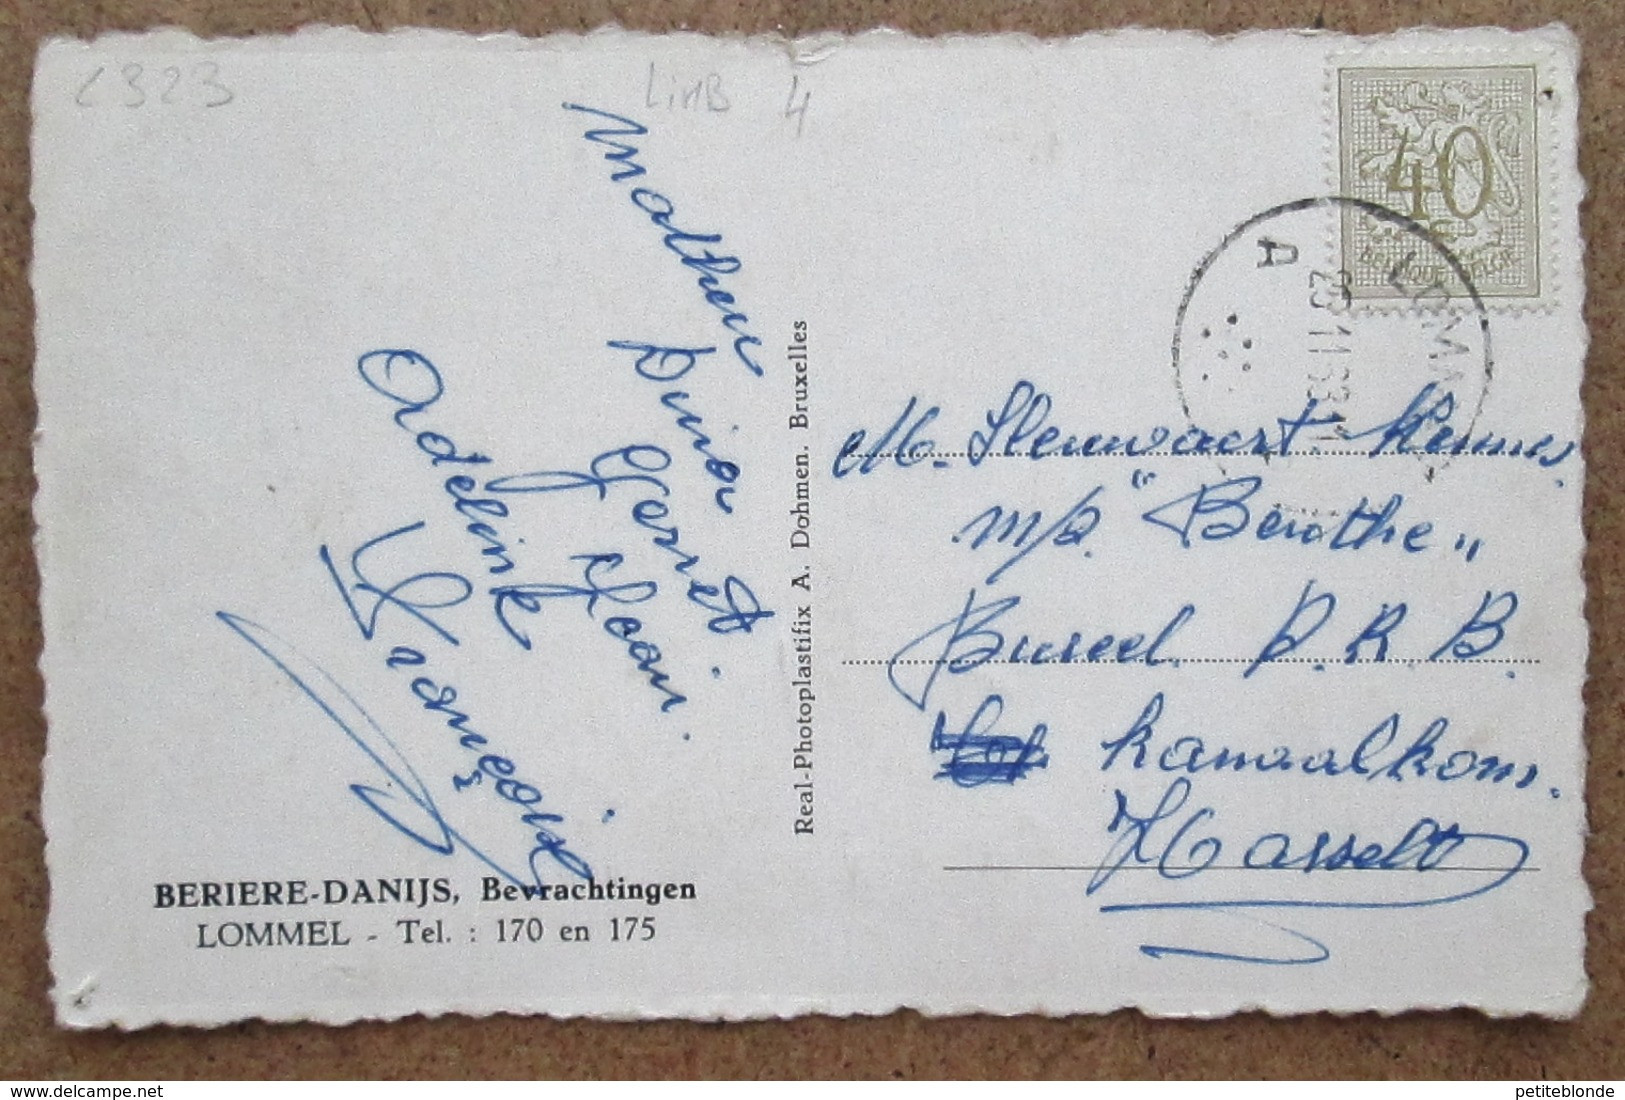 c323
LIMB 4
Mathieu
Dinia
Gerret.
Adelink
François.
BERIERE-DANIJS, Bevrachtingen
LOMMEL - Tel. : 170 en 175
Real-Photoplastifix A. Dohmen. Bruxelles
40
BELGIQUE-BELGIE
LOMMEL
A
M. Kennes.
m/s. "Berthe"
Bureel. D. R. B.
kanaalkom.
Hasselt
delcampe.net
petiteblonde